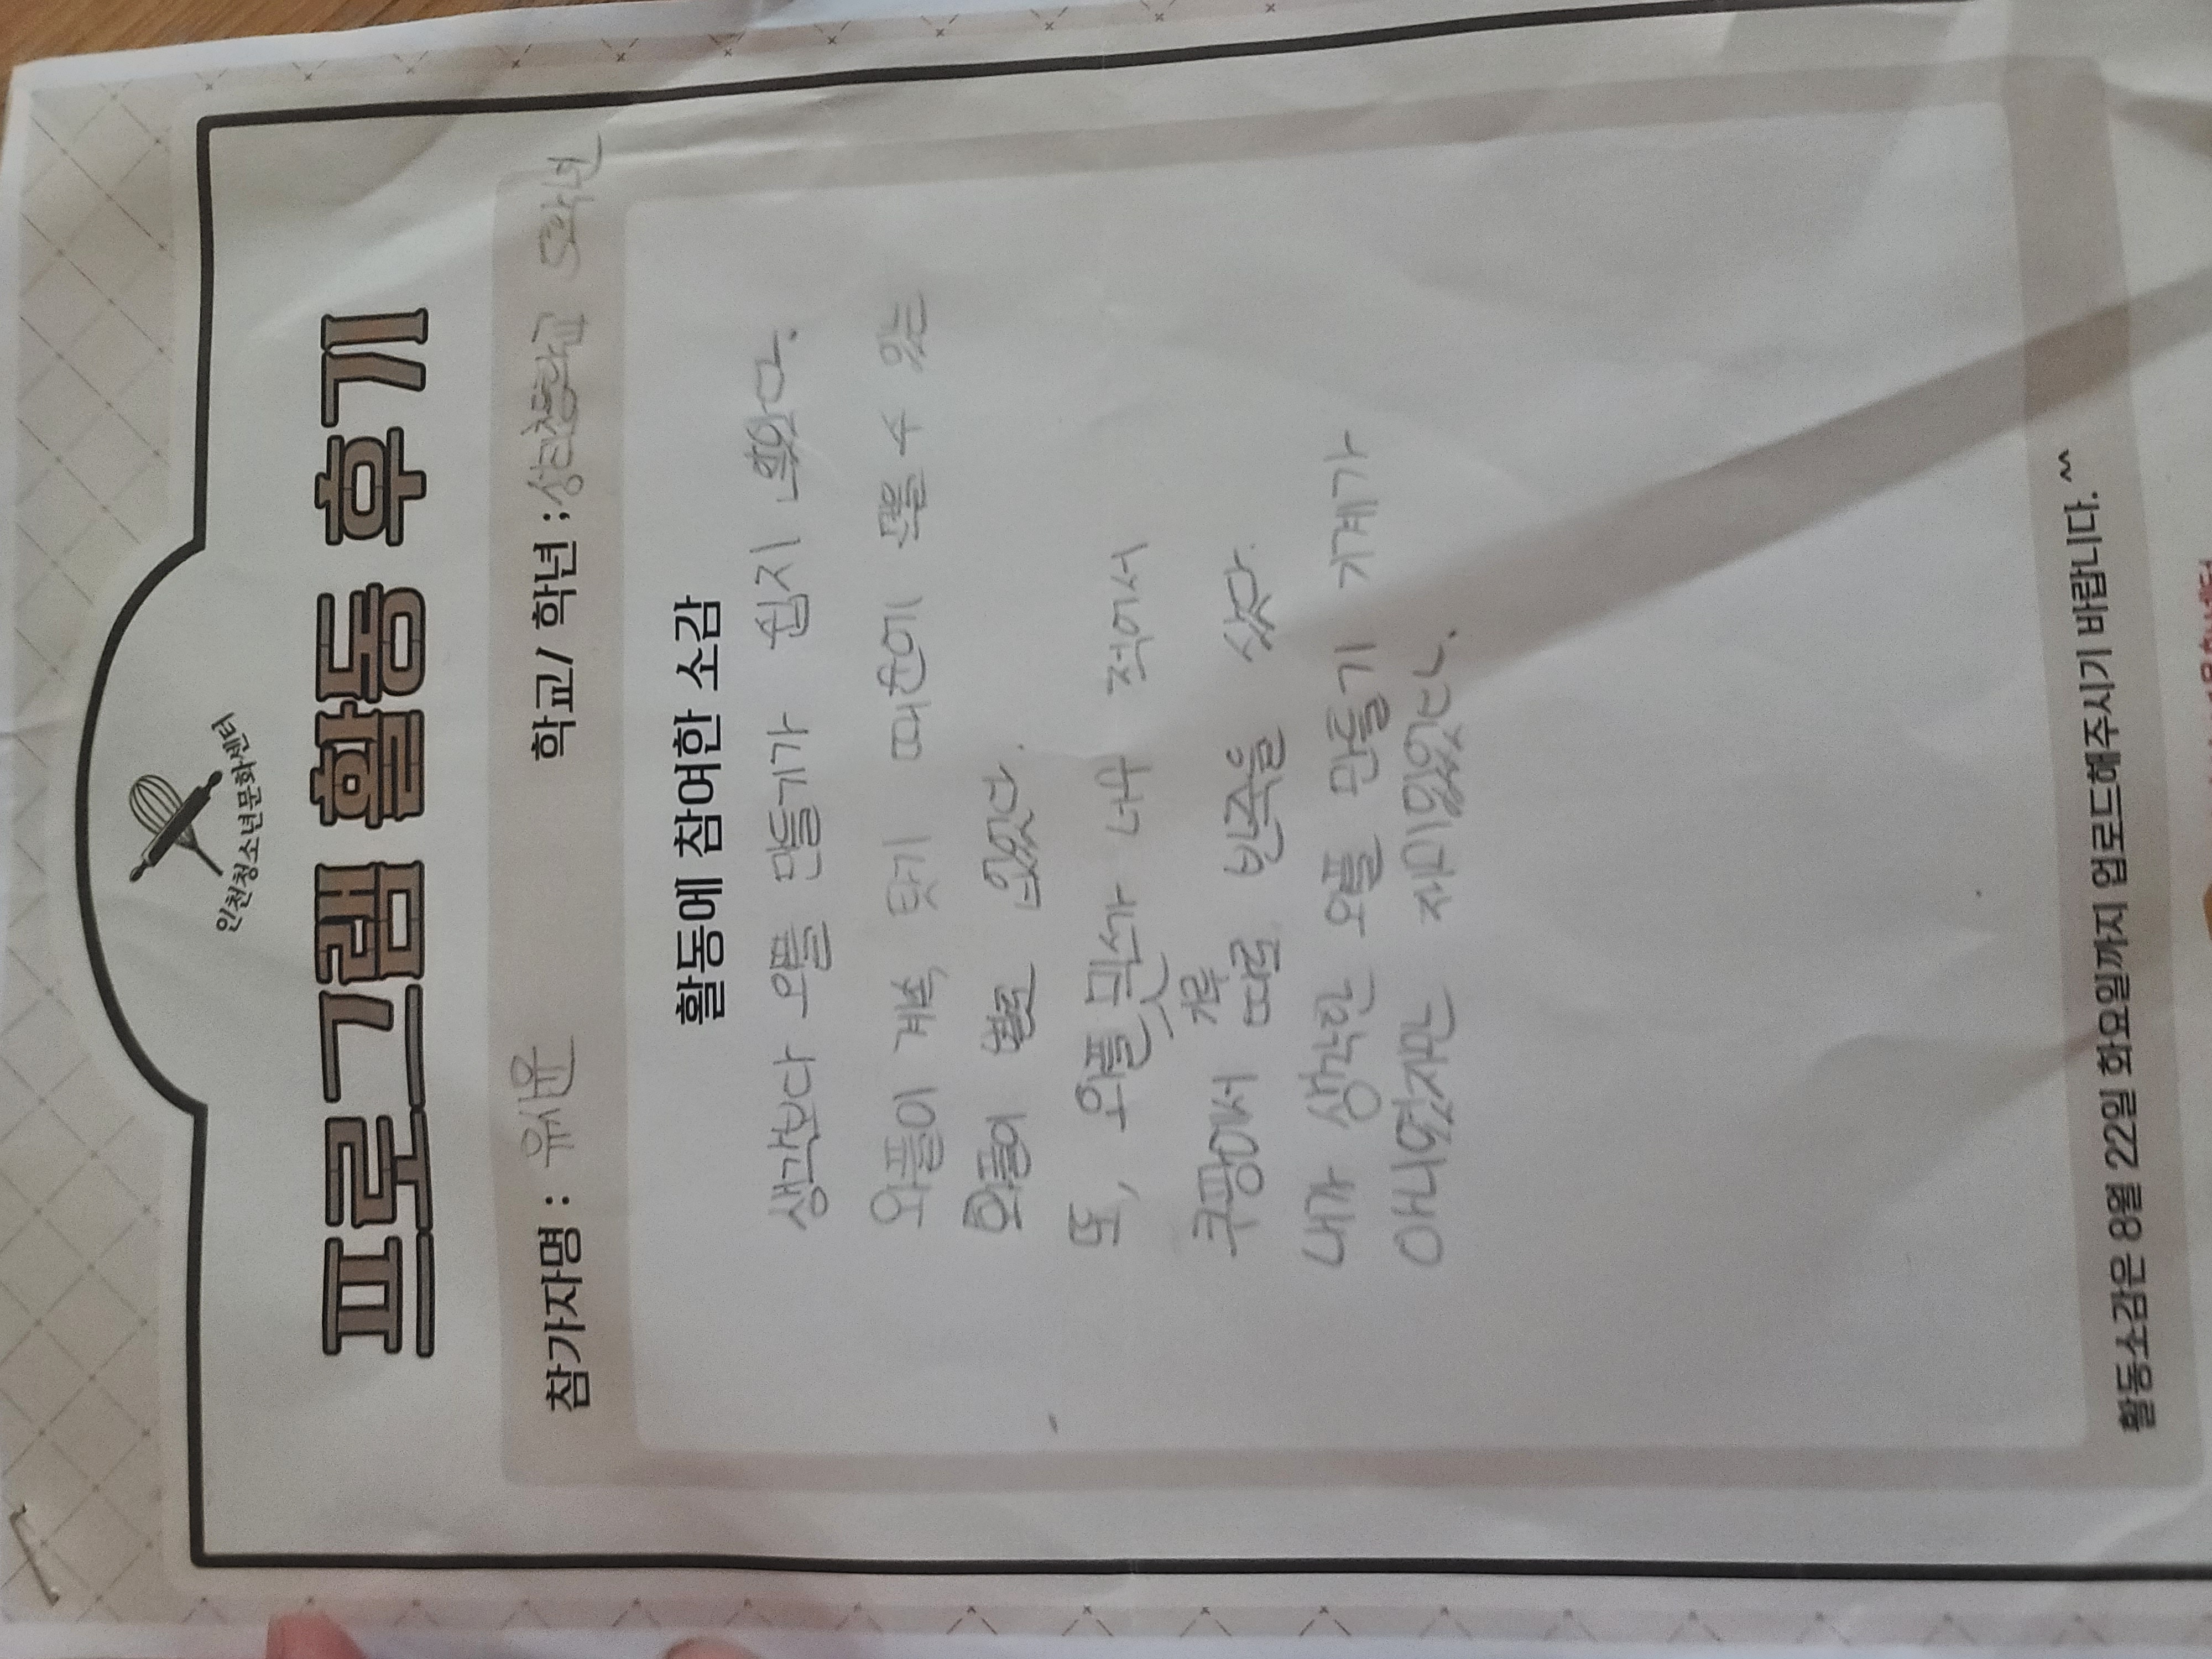 인천청소년문화센터
프로그램 활동 후기
참가자명 : 유시윤 학교/ 학년 : 5학년
활동에 참여한 소감
생각보다 와플 만들기가 쉽지 않았다.
와플이 계속 타기 때문에 먹을 수 있는
와플이 별로 없었다.
또, 와플 믹스가 너무 적어서
쿠팡에서 따로 반죽을 샀다.
가루
내가 생각한 와플 만들기 기계가
아니였지만 재미있었다.
활동소감은 8월 22일 화요일까지 업로드해주시기 바랍니다. ^^